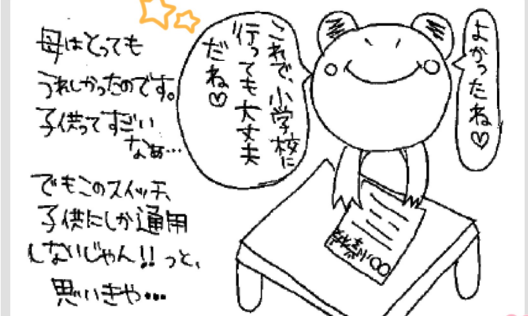 よかったね♡
これで、小学校に
行っても大丈夫
だね♡
母はとっても
うれしかったのです。
子供ってすごい
なぁ…
でもこのスイッチ、
子供にしか通用
しないじゃん!!っと、
思いきや…